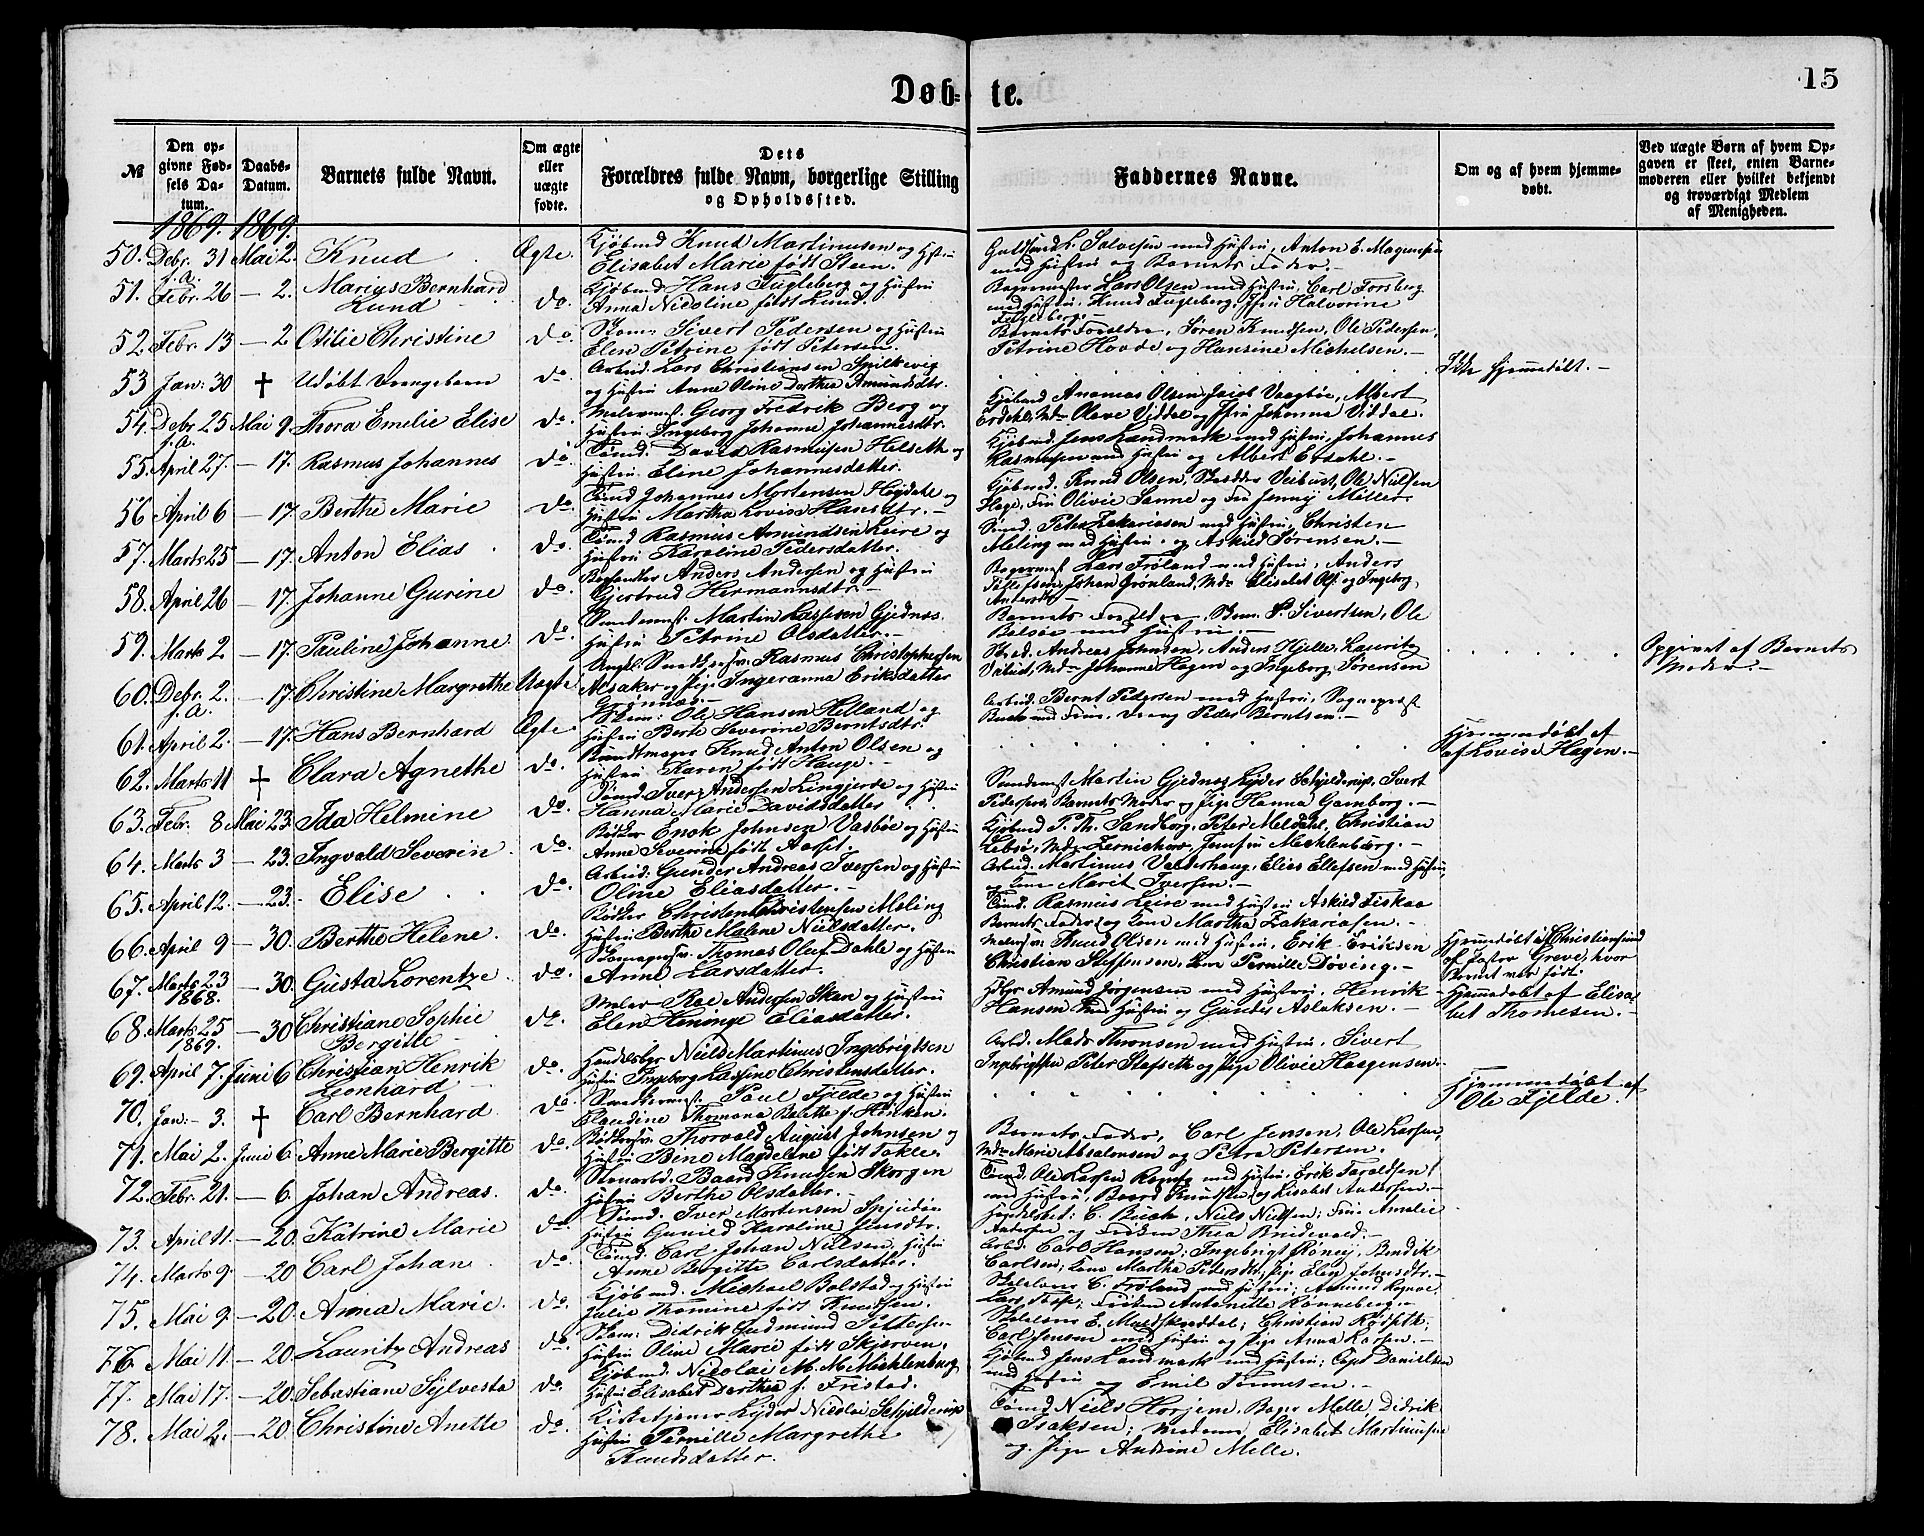 15
Døb= te.
№
Den op-
givne Fød-
sels Da-
tum.
Daabs-
Datum.
Barnets fulde Navn.
Om ægte
eller
uægte
fødte.
Dets
Forældres fulde Navn, borgerlige Stilling
og Opholdssted.
Faddernes Navne.
Om og af hvem hjemme-
døbt.
Ved uægte Børn af hvem Op-
gaven er skeet, enten Barne-
moderen eller hvilket bekjendt
og troværdigt Medlem
af Menigheden.
1869. 1869.
50. Debr. 31 Mai 2. Knud Ægte. Kjøbmd Knud Martinusen og Hstru
f.a. Elisabet Marie født Steen.
Solvesen med Hustru, Anton E. Magnussen
med Hustru og Barnets Fader.
51. Febr. 26 — 2. Marius Bernhard do. Kjøbmd Hans Fugleberg og Hustru
Lund Anna Nicoline født Lund.
Bagermester Lars Olsen med Hustru, Carl Forsberg
med Hustru, Knud Fugleberg, Jfru Halvorine
Fugleberg.
52. Febr. 13 — 2 Otilie Christine do Sivert Pedersen og Hustru
Elen Petrine født Petersen.
Barnets Forældre, Søren Knudsen, Ole Pedersen,
Petrine Hovde og Hansine Michelsen.
53 Jan: 30 † Udøbt Drengebarn do Arbeid. Lars Christiansen Smilkevig
og Hustru Anne Oline Dorthea Amundsdtr.
Ikke hjemmedøbt.
54. Debr 25 Mai 9. Thora Emelie Elise do. Malermst. Georg Fredrik Berg og
f.a. Hustru Ingeborg Johanne Johannesdtr.
Kjøbmd Ananias Olsen, Jacob Vaagbøe, Albert
Mdm Olave Viddal og Jfru Johanna Viddal.
55. April 27. — 17. Rasmus Johannes do David Rasmusen Helseth og
Hustru Eline Johannesdatter.
Kjøbmd. Jens Landmark med Hustru, Johannes
Rasmusen med Hustru og Albert
56 April 6 — 17. Berthe Marie do. Johannes Mortensen Høgdahl og
Hustru Martha Lovise Hansdtr.
Kjøbmd. Knud Olsen, Veibust, Ole Nielsen
Hage, Fru Olivie Sanne og Fru Jenny Møller.
57. Marts 25 — 17. Anton Elias do. Rasmus Asmundsen Leire og
Hustru Karoline Pedersdatter.
Peter Zakariasen med Hustru, Christen
Meling med Hustru og Askild Sørensen.
58. April 26 — 17. Johanne Gurine do. Anders Andersen og Hustru
Gjertrud Hermannsdtr.
Bagermest Lars Frøland med Hustru, Anders
Johan Grønland, Mdm Elisabet Ols. og Ingeborg
Andersdtr.
59. Marts 2 — 17. Pauline Johanne do. Martin Lassesen Gjednæs.
Hustru Petrine Olsdatter.
Barnets Forældre, S. Sivertsen, Ole
med Hustru.
60. Debr. 2. — 17. Christine Margrethe Uægte Rasmus Christophersen
f.a. Alsaker og Pige Ingeranna Eriksdatter
Andreas Johnsen, Anders Hjelle, Lauritz
Mdm Johanna Hagen og Ingeborg Sørensen
Opgivet af Barnets
Moder.
61. April 2. — 17. Hans Bernhard Ægte Ole Hansen Helland og
Hustru Berte Severine Berntsdtr.
Arbeid. Bernt Pedersen med Hustru, Sogneprest
Dreng Peder Berntsen.
62. Marts 11 † Clara Agnethe do. Knud Anton Olsen og
Hustru Karen født Hauge.
Hjemmedøbt af
af Lovise Hagen.
63. Febr. 8 Mai 23. Ida Helmine do. Iver Andersen Lingjerde og Hustru
Hanna Marie Davidsdatter
Martin Gjednæs, Lyder Schjelderup, Sivert
Pedersen, Barnets Moder og Pige Hanna Gamborg.
64. Marts 3 — 23. Ingvald Severin do. Bødker Enok Johnsen Vasbøe og Hustru
Anne Severine født Aaset.
Kjøbmd P. Th. Sandborg, Peter Meldahl, Christian
Mdm Zernichow, Jomfru Mechlenburg.
65. April 12. — 23. Elise do. Arbeid. Gunder Andreas Iversen og Hustru
Oline Eliasdatter.
Arbeid. Martinus Valderhaug, Elias Ellefsen med Hustru,
og Kone Marit Iversen.
66. April 9 — 30. Berthe Helene. do. Bødker Christen Christensen Meling
Hustru Berthe Malene Nielsdatter.
Rasmus Leire med Hustru, Askild Fiskaa
Barnets Fader og Kone Martha Zakariasen.
67. Marts 23 — 30. Gusta Lorentze do. Thomas Oluf Dahle og Hustru
1868. Anne Larsdatter.
Knud Olsen med Hustru, Erik Eriksen
Christian Steffensen, Kone Pernille Døving.
Hjemmedøbt i Christiansund
af Pastor Greve, hvor
Barnet var født.
68. Marts 25 — 30 Christiane Sophie do. Maler Roe Andersen Skar og Hustru
1869. Bergitte Elen Heninge Eliasdatter.
Amund Jørgensen med Hustru, Henrik
Hansen med Hustru og Gunder Aslaksen.
Hjemmedøbt af Elisa-
bet Thomesen.
69. April 7. Juni 6 Christian Henrik do. Niels Martinus Ingebrigtsen
Leonhard Hustru Ingeborg Lassine Christensdatter.
Arbd. Mads Thronsen med Hustru, Sivert
Ingebrigtsen, Peter Stafseth og Pige Olivie Haagensen.
70. Jan: 3. † Carl Bernhard do. Paul Fjelde og Hustru
Claudine Thomana Bolette f. Henken.
Hjemmedøbt af
Ole Fjelde.
71. Mai 2. Juni 6. Anne Marie Bergitte do. Thorvald August Johnsen og
Hustru Bine Magdelene født Takle.
Barnets Fader, Carl Jensen, Ole Larsen,
Mdm Marie Absalonsen og Petra Petersen.
72. Febr. 21. — 6. Johan Andreas. do. Baard Knudsen Skorgen
Hustru Berthe Olsdatter.
Ole Larsen med Hustru, Erik Taraldsen
med Hustru, Baard Knudsen og Lisabet Andersen.
73. April 11. — 20. Katrine Marie do. Iver Mortensen
Hustru Gunild Karoline Jensdtr.
C. Buck, Niels Nielsen, Fru Amalie
Andersen og Frøken Thea Brudevold.
74. Marts 9. — 20 Carl Johan do. Carl Johan Nielsen, Hustru
Anne Bergitte Carlsdatter.
Arbd. Carl Hansen, Ingebrigt Rønnij, Bendik
Carlsen, Kone Martha Pedersdtr, Pige Elen Johnsdtr.
75. Mai 9. — 20. Anna Marie. do. Kjøbmd. Michael Bolstad og Hustru
Julie Thomine født Knudsen.
C. Frøland med Hustru, Amund
Lars Frøken Antonette Rønneberg.
76. Mai 11. — 20. Lauritz Andreas do. Didrik Gudmund Pettersen
Hustru Oline Marie født Skjerven.
E. Muldskreddal, Christian Rødseth,
Carl Jensen med Hustru og Pige Anna Larsen.
77. Mai 17. — 20. Sebastiane Sylvesta do Kjøbmd. Nicolai M. M. Mechlenburg
Hustru Elisabet Dorthea f. Fristad.
Kjøbmd Jens Landmark med Hustru, Capt Danielsen
med Hustru og Emil Tønnesen.
78. Mai 2. — 20 Christine Anette do. Kirketjener Lyder Nicolai Schjelderup
Hustru Pernille Margrethe
Knudsdatter.
Niels Horjem, Bager Melle, Didrik
Isaksen, Madame Elisabet Martinusen
og Pige Andrine Melle.